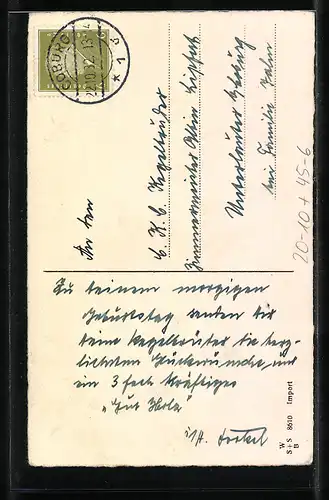 COBURG
1 b
An den
E. K. C. Kegelbruder
Zimmermeister
Unterlauter Coburg
bei Familie Hahn
20-10 + 45-6
Zu deinem morgigen
Geburtstag senden dir
deine Kegelbrüder die herz-
lichsten Glückwünsche und
ein 3 fach kräftiges
"Gut Holz"
i/A.
W
S+S 8610 Import
B